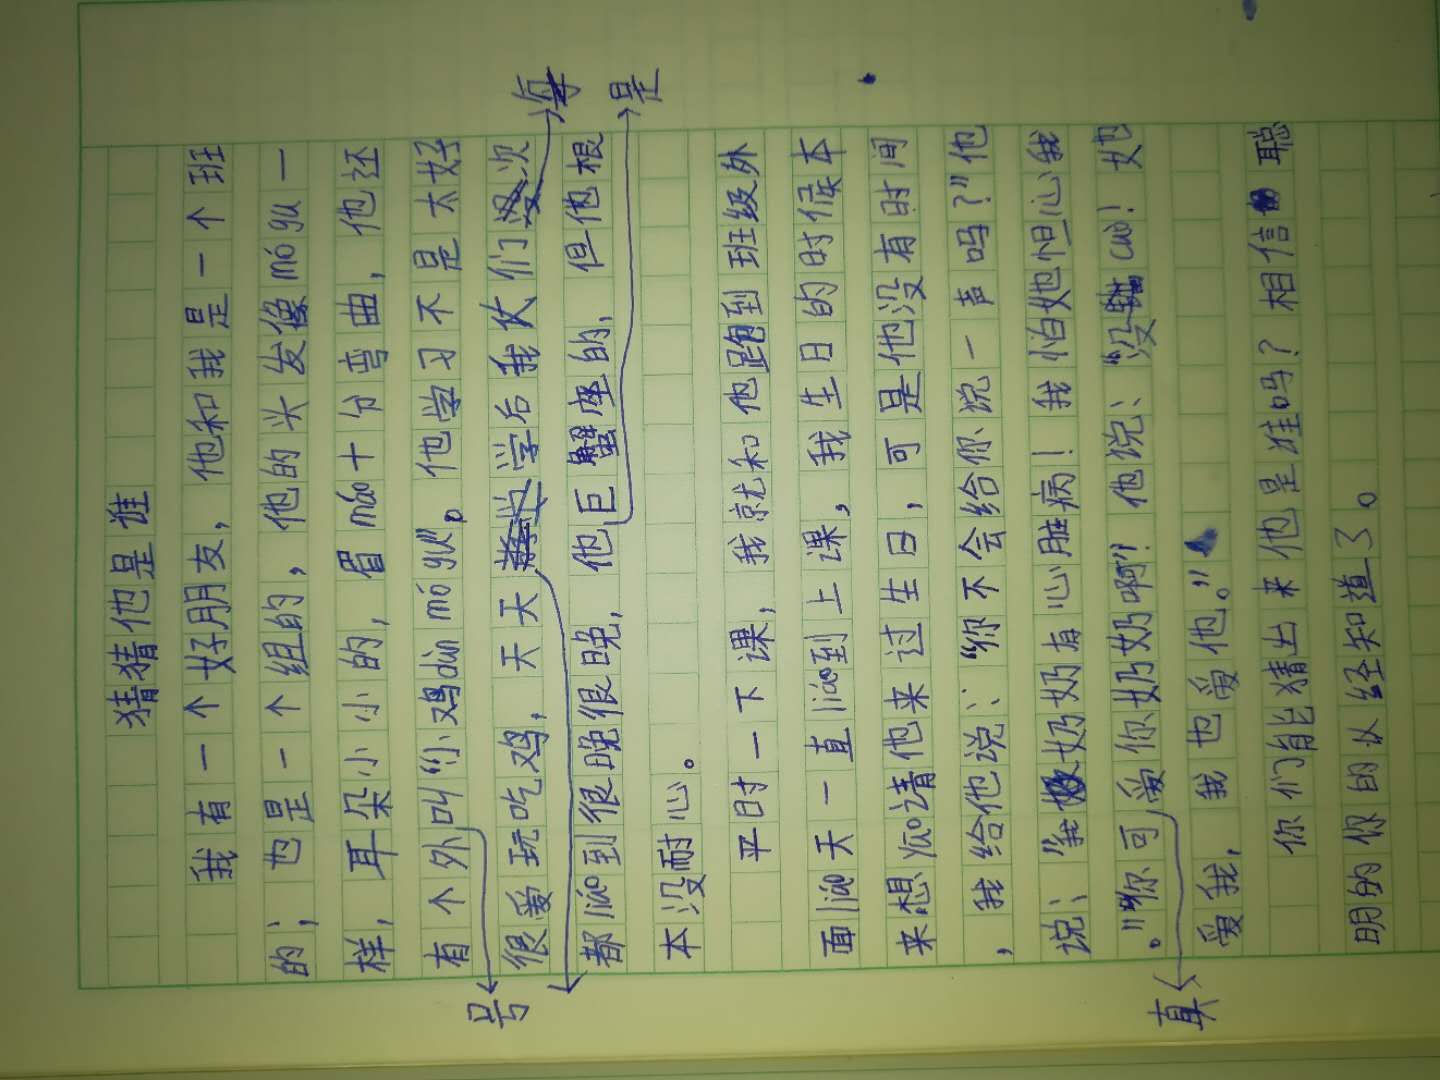 猜猜他是谁
我有一个好朋友，他和我是一个班
的；也是一个组的，他的头发像mó gu一
样，耳朵小小的，眉máo十分弯曲，他还
有个外号叫“小鸡dùn mó gu”。他学习不是太好
很爱玩吃鸡，天天学后我伙们每次
都liáo到很晚很晚，他是巨蟹座的，但他根
本没耐心。
平时一下课，我就和他跑到班级外
面liáo天一直liáo到上课，我生日的时候本
来想yāo请他来过生日，可是他没有时间
，我给他说：“你不会给你说一声吗？”他
说：“我奶奶有心脏病！我怕她担心我
。”“你可真爱你奶奶啊”！他说：“没cuò！她
爱我，我也爱他。”
你们能猜出来他是谁吗？相信聪
明的你的以经知道了。